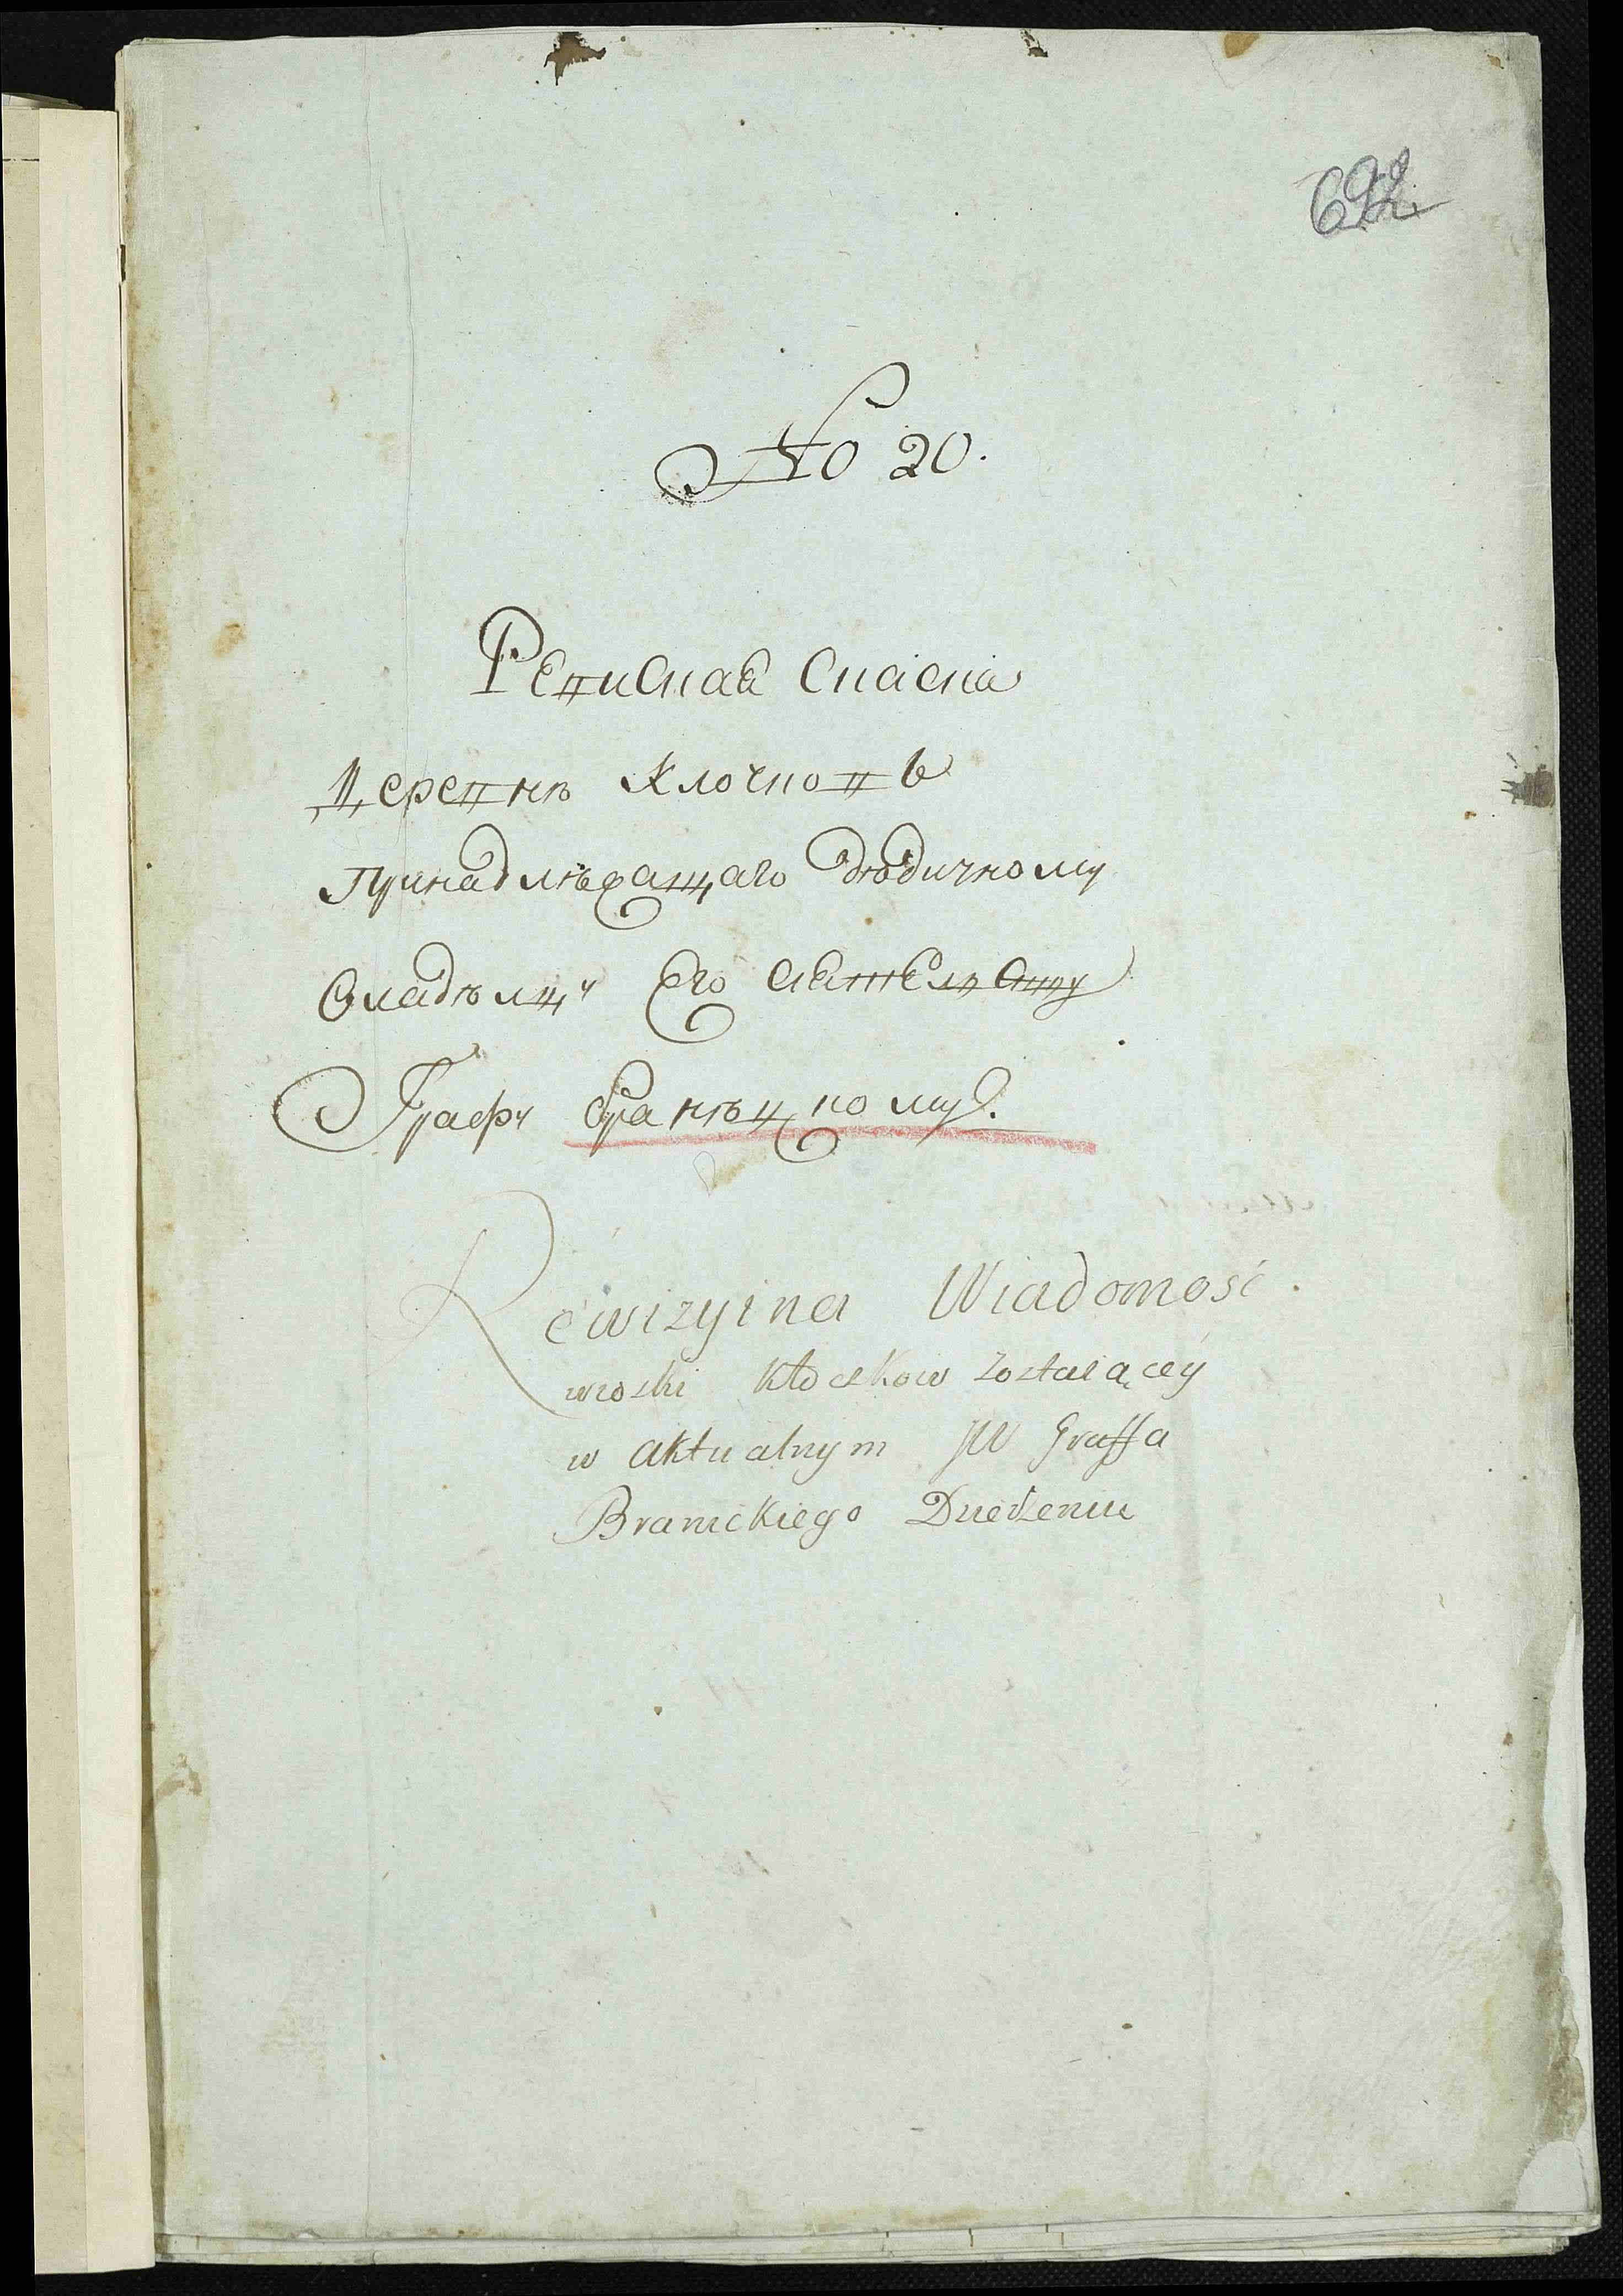 692
No 20.
Ревиская Скаска
Деревнѣ Клочковъ
Принадлѣжащаго Дѣдичному
Владѣлцу Его Сіятелству
Графу Бранѣцкому.
Rewizyina Wiadomość.
wioski Kłoczkow zostaiącey
w aktualnym JW Graffa
Branickiego Dzierżeniu